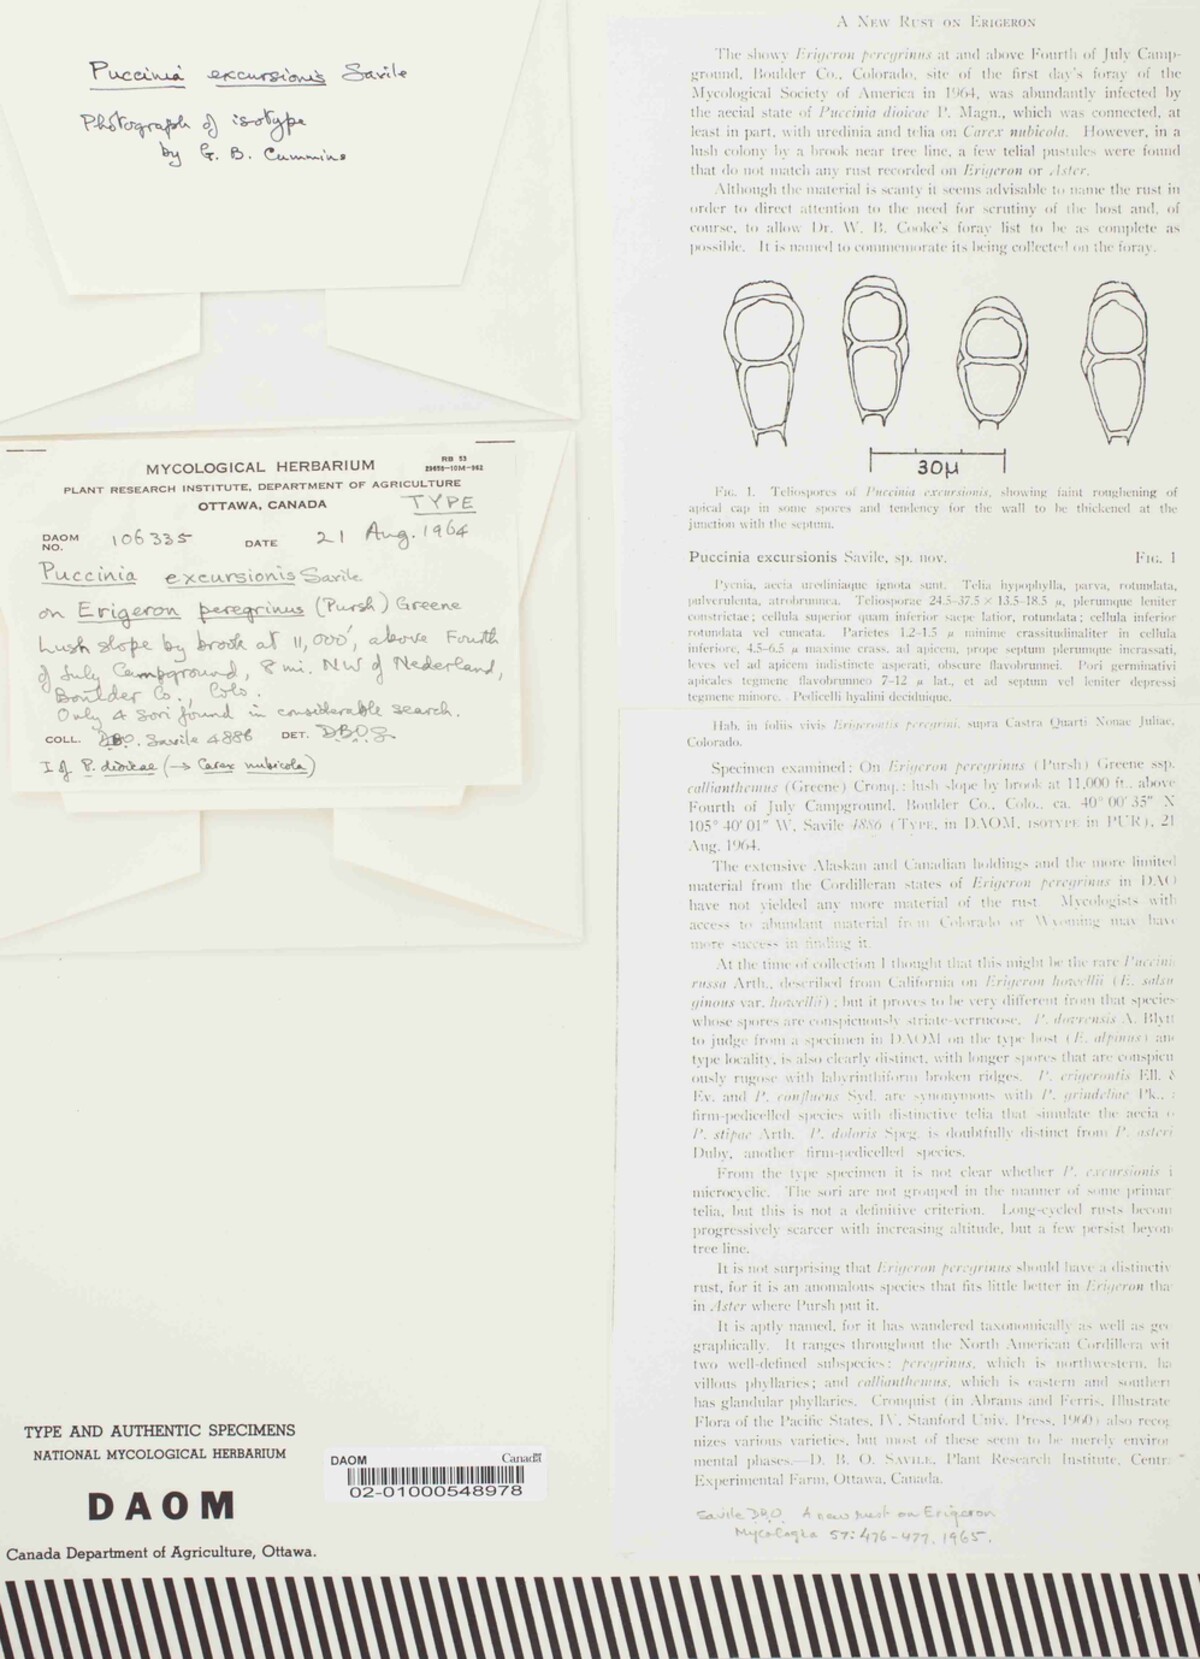 Puccinia excursionis Savile
Photograph of isotype
by G. B. Cummins
MYCOLOGICAL HERBARIUM
RB 53
29656-10M-962
PLANT RESEARCH INSTITUTE, DEPARTMENT OF AGRICULTURE
OTTAWA, CANADA
TYPE
DAOM NO. 106335 DATE 21 Aug. 1964
Puccinia excursionis Savile
on Erigeron peregrinus (Pursh) Greene
Lush slope by brook at 11,000', above Fourth
of July Campground, 8 mi. NW of Nederland,
Boulder Co., Colo.
Only 4 sori found in considerable search.
COLL. D.B.O. Savile 4886 DET. D.B.O.S.
I of P. dioicae (→ Carex nubicola)
TYPE AND AUTHENTIC SPECIMENS
NATIONAL MYCOLOGICAL HERBARIUM
DAOM
Canada Department of Agriculture, Ottawa.
DAOM Canada
02-01000548978
A New Rust on Erigeron
The showy Erigeron peregrinus at and above Fourth of July Camp-
ground, Boulder Co., Colorado, site of the first day's foray of the
Mycological Society of America in 1964, was abundantly infected by
the aecial state of Puccinia dioicae P. Magn., which was connected, at
least in part, with uredinia and telia on Carex nubicola. However, in a
lush colony by a brook near tree line, a few telial pustules were found
that do not match any rust recorded on Erigeron or Aster.
Although the material is scanty it seems advisable to name the rust in
order to direct attention to the need for scrutiny of the host and, of
course, to allow Dr. W. B. Cooke's foray list to be as complete as
possible. It is named to commemorate its being collected on the foray.
30µ
Fig. 1. Teliospores of Puccinia excursionis, showing faint roughening of
apical cap in some spores and tendency for the wall to be thickened at the
junction with the septum.
Puccinia excursionis Savile, sp. nov. Fig. 1
Pycnia, aecia urediniaque ignota sunt. Telia hypophylla, parva, rotundata,
pulverulenta, atrobrunnea. Teliosporae 24.5-37.5 × 13.5-18.5 µ, plerumque leniter
constrictae; cellula superior quam inferior saepe latior, rotundata; cellula inferior
rotundata vel cuneata. Parietes 1.2-1.5 µ minime crassitudinaliter in cellula
inferiore, 4.5-6.5 µ maxime crass. ad apicem, prope septum plerumque incrassati,
leves vel ad apicem indistincte asperati, obscure flavobrunnei. Pori germinativi
apicales tegmene flavobrunneo 7-12 µ lat., et ad septum vel leniter depressi
tegmene minore. Pedicelli hyalini deciduique.
Hab. in foliis vivis Erigerontis peregrini, supra Castra Quarti Nonae Juliae,
Colorado.
Specimen examined: On Erigeron peregrinus (Pursh) Greene ssp.
callianthemus (Greene) Cronq.: lush slope by brook at 11,000 ft., above
Fourth of July Campground, Boulder Co., Colo., ca. 40° 00' 35" N
105° 40' 01" W, Savile 4886 (Type, in DAOM, isotype in PUR), 21
Aug. 1964.
The extensive Alaskan and Canadian holdings and the more limited
material from the Cordilleran states of Erigeron peregrinus in DAO
have not yielded any more material of the rust. Mycologists with
access to abundant material from Colorado or Wyoming may have
more success in finding it.
At the time of collection I thought that this might be the rare Puccini
russa Arth., described from California on Erigeron howellii (E. salsu
ginosus var. howellii); but it proves to be very different from that species
whose spores are conspicuously striate-verrucose. P. dovrensis A. Blytt
to judge from a specimen in DAOM on the type host (E. alpinus) and
type locality, is also clearly distinct, with longer spores that are conspicu
ously rugose with labyrinthiform broken ridges. P. erigerontis Ell. &
Ev. and P. confluens Syd. are synonymous with P. grindeliae Pk., a
firm-pedicelled species with distinctive telia that simulate the aecia o
P. stipae Arth. P. doloris Speg. is doubtfully distinct from P. asteri
Duby, another firm-pedicelled species.
From the type specimen it is not clear whether P. excursionis i
microcyclic. The sori are not grouped in the manner of some primar
telia, but this is not a definitive criterion. Long-cycled rusts becom
progressively scarcer with increasing altitude, but a few persist beyon
tree line.
It is not surprising that Erigeron peregrinus should have a distinctiv
rust, for it is an anomalous species that fits little better in Erigeron tha
in Aster where Pursh put it.
It is aptly named, for it has wandered taxonomically as well as geo
graphically. It ranges throughout the North American Cordillera wit
two well-defined subspecies: peregrinus, which is northwestern, ha
villous phyllaries; and callianthemus, which is eastern and southern
has glandular phyllaries. Cronquist (in Abrams and Ferris, Illustrate
Flora of the Pacific States, IV, Stanford Univ. Press, 1960) also recog
nizes various varieties, but most of these seem to be merely environ
mental phases.—D. B. O. Savile, Plant Research Institute, Centr
Experimental Farm, Ottawa, Canada.
Savile D.B.O. A new rust on Erigeron
Mycologia 57: 476-477. 1965.